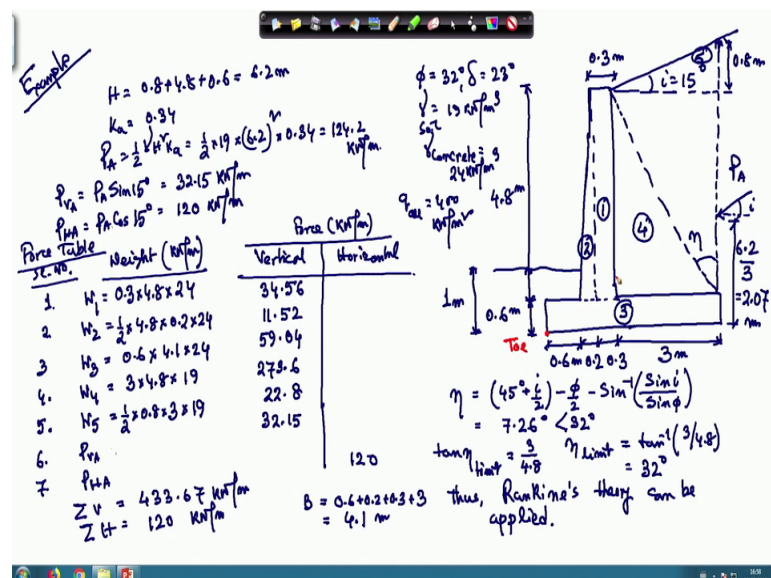 Example
H = 0.8+4.8+0.6 = 6.2m
Ka = 0.34
PA = 1/2 γH²Ka = 1/2 × 19 × (6.2)² × 0.34 = 124.2 KN/m.
PVA = PA Sin15° = 32.15 KN/m
PHA = PA Cos 15° = 120 KN/m
Force Table
Sl. No. Weight (KN/m) Force (KN/m)
Vertical Horizontal
1. W1 = 0.3×4.8×24 34.56
2 W2 = 1/2 × 4.8 × 0.2 × 24 11.52
3 W3 = 0.6 × 4.1 × 24 59.04
4. W4 = 3×4.8 × 19 273.6
5. W5 = 1/2 × 0.8 × 3 × 19 22.8
6. PVA 32.15
7. PHA 120
ΣV = 433.67 KN/m
ΣH = 120 KN/m
B = 0.6+0.2+0.3+3
= 4.1 m
ϕ = 32°, δ = 23°
γsoil = 19 KN/m³
γconcrete = 24 KN/m³
qall = 400 KN/m²
0.3 m
5
i = 15
0.8m
PA
i
4.8m
1
2
4
η
6.2/3
= 2.07 m
1m
0.6m
3
Toe
0.6m 0.2 0.3 3m
η = (45° + i/2) - ϕ/2 - Sin⁻¹(Sini/Sinϕ)
= 7.26° < 32°
tanηlimit = 3/4.8 ηlimit = tan⁻¹(3/4.8)
= 32°
Thus, Rankine's theory can be
applied.
16:58